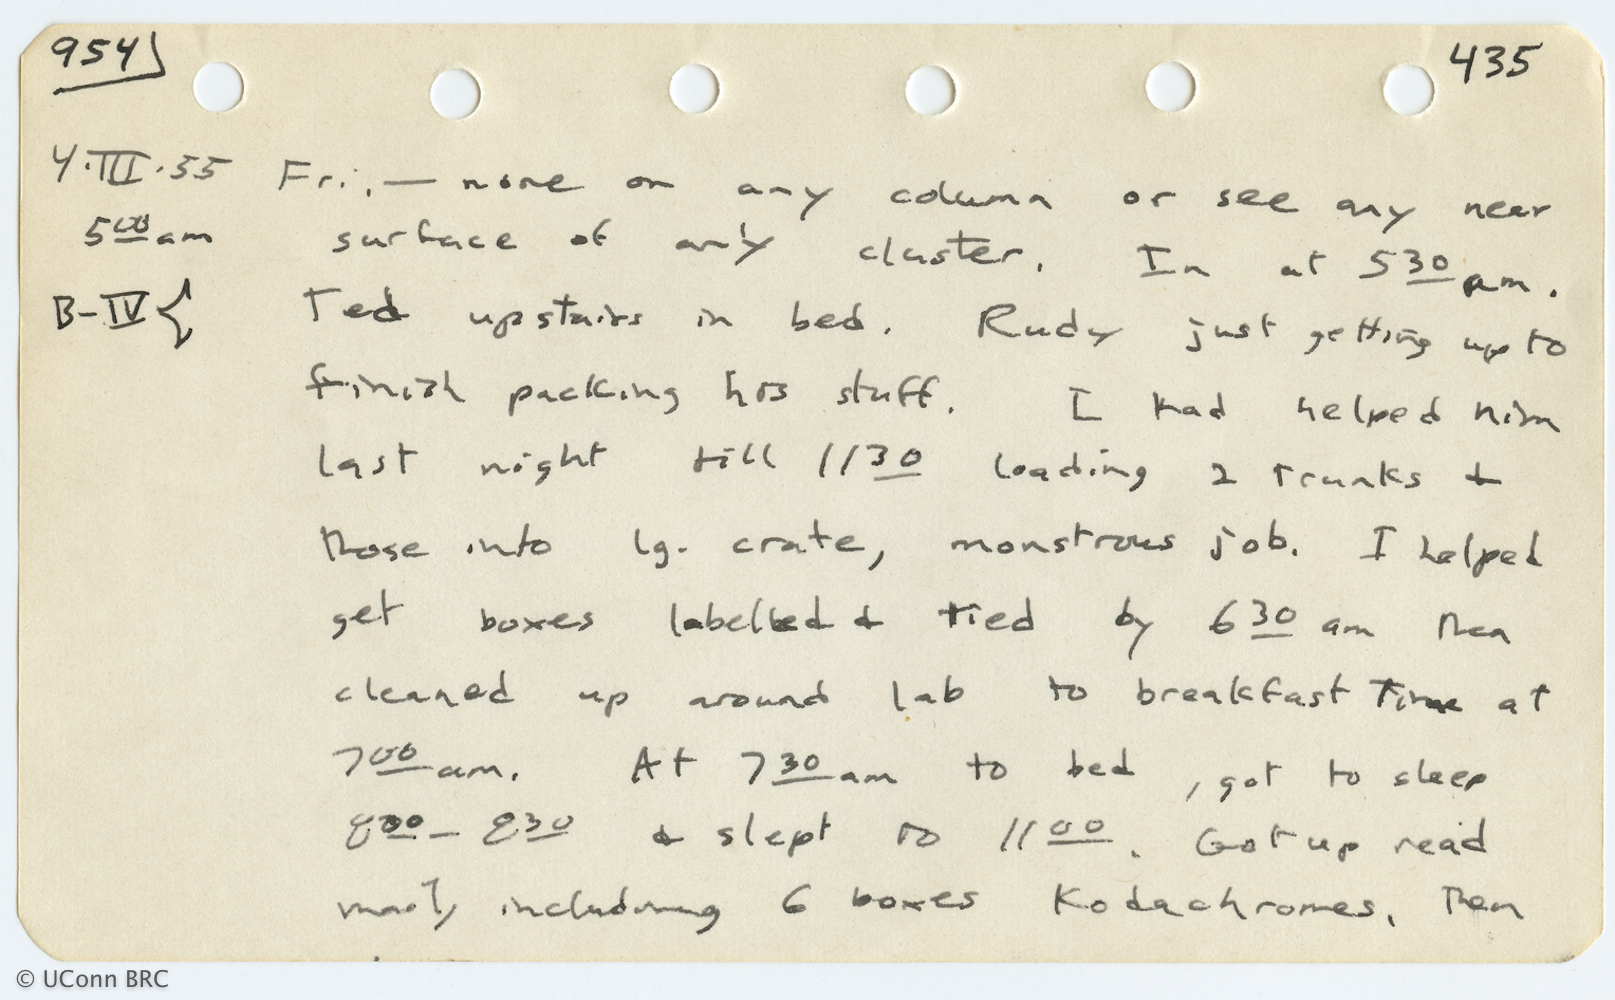 954 435
4·III·55 Fri., — none on any column or see any near
5 00 am surface of any cluster. In at 5 30 am.
B-IV { Ted upstairs in bed. Rudy just getting up to
finish packing his stuff. I had helped him
last night till 11 30 loading 2 trunks &
those into lg. crate, monstrous job. I helped
get boxes labelled & tied by 6 30 am then
cleaned up around lab to breakfast time at
7 00 am. At 7 30 am to bed, got to sleep
8 00 – 8 30 & slept to 11 00. Got up read
mail, including 6 boxes Kodachromes, then
© UConn BRC